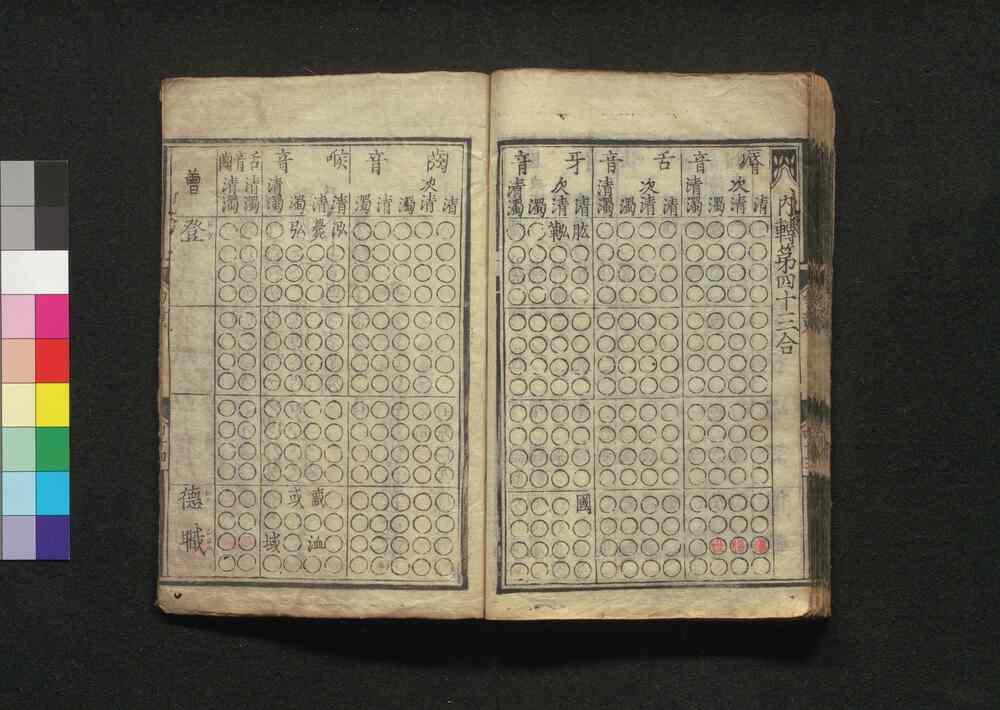 内轉第四十三合
脣 音 舌 音 牙 音
清 次清 濁 清濁 清 次清 濁 清濁 清 次清 濁 清濁
肱 鞃
國
齒 音 喉 音 舌 齒
清 次清 濁 清 濁 清 清 濁 清濁 清濁 清濁
泓 薨 弘
或
洫 域
曾
登
德
職